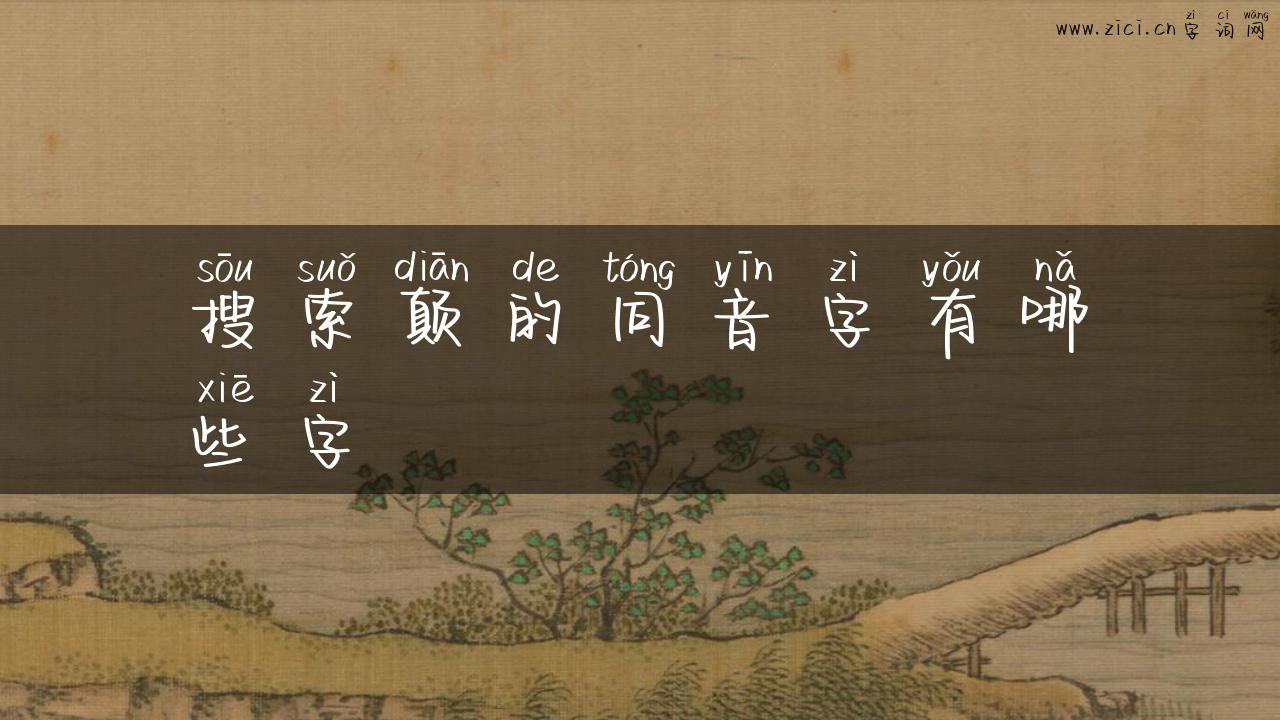 zì cí wǎng
www.zici.cn字词网
sōu suǒ diān de tóng yīn zì yǒu nǎ
搜索颠的同音字有哪
xiē zì
些字